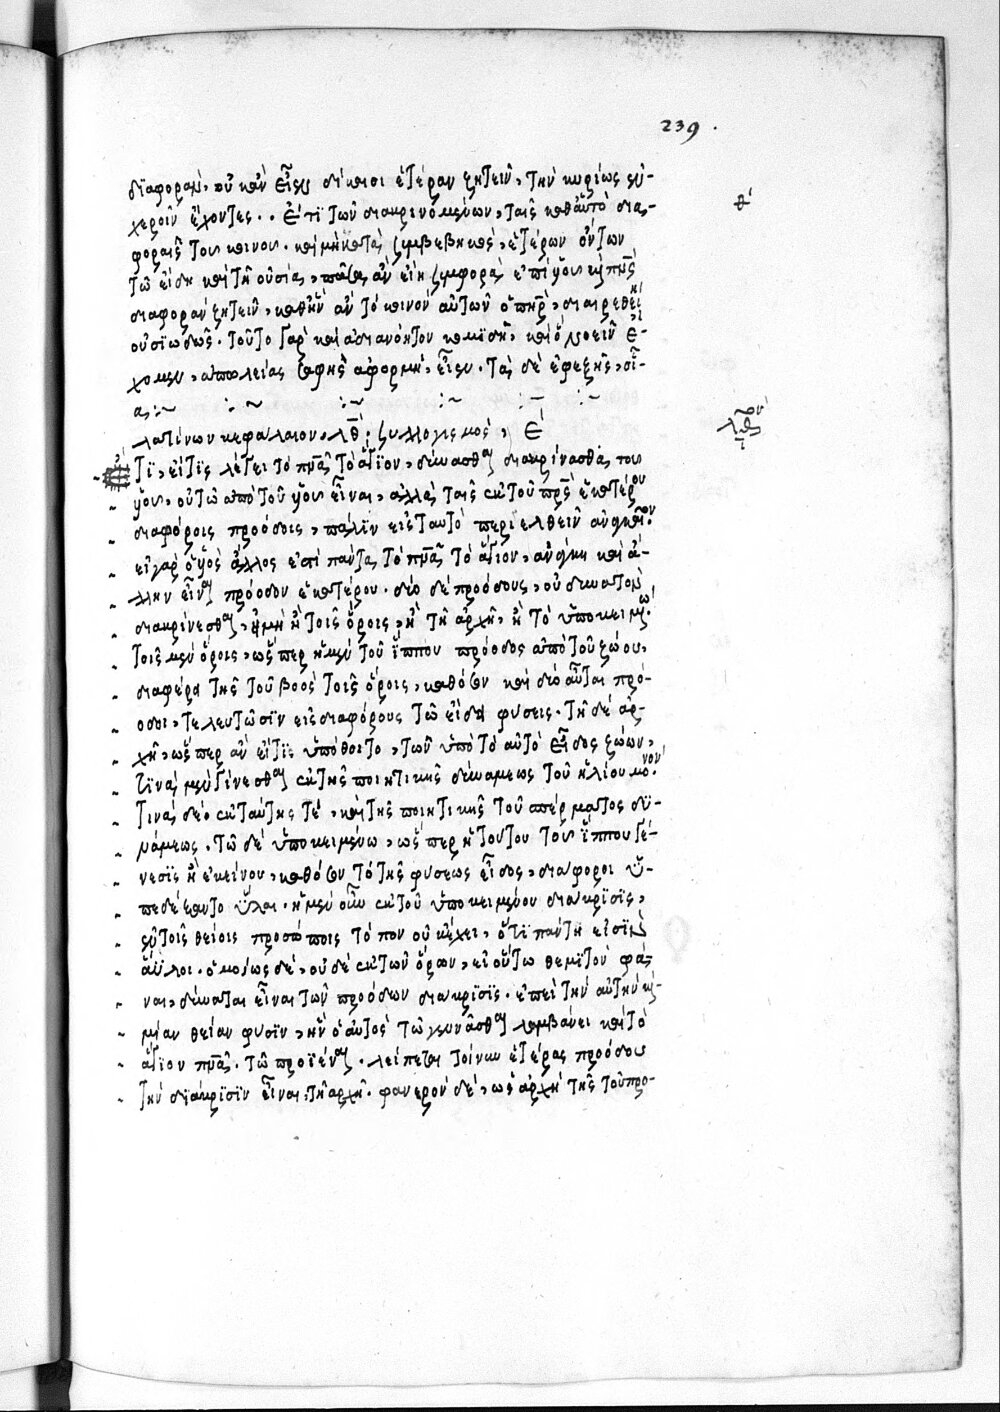 239.
διαφοράν, οὐκ ἂν εἶεν δίκαιοι ἑτέραν ζητεῖν, τὴν κυρίως εὐ-
χεροῖν ἔχοντες. . Ἔτι τῶν διακρινόμενων, ταῖς καθαὑτὸ δια-
φοραῖς τοῦ κοινοῦ. καὶ μὴ κατὰ συμβεβηκὸς, ἑτέρων ὄντων
τῷ εἴδει καὶ τῇ οὐσίᾳ, πᾶσα ἂν εἴη συμφορὰ ἐπὶ υἱοῦ καὶ πνς
διαφορὰν ζητεῖν, καθ' ἣν ἂν τὸ κοινὸν αὐτῶν ὁ πηρ, διαιρεθείη
οὐσιωδῶς. τοῦτο γὰρ καὶ ἀδιανόητον κομιδῇ, καὶ ὀλισθεῖν ἐ-
χομεν, ἀπωλείας σαφὴς ἀφορμὴ, εἶεν. Τὰ δὲ ἐφεξῆς, θεῖ-
α:~ :~ :~ :~ :~ :~
θ'
λατίνων κεφάλαιον, λθ: συλλογισμὸς, ε'
Ἔτι, εἴ τις λέγει τὸ πνα τὸ ἅγιον, δύνασθαι διακρίνασθαι τοῦ
υἱοῦ, οὐ τῷ ἀπὸ τοῦ υἱοῦ εἶναι, ἀλλὰ ταῖς ἐκ τοῦ πρς ἑκατέρου
διαφόροις προόδοις, πάλιν εἰς ταυτὸ περιελθεῖν ἀναγκαῖον.
εἰ γὰρ ὁ υἱὸς ἄλλος ἐστὶ παρὰ τὸ πνα τὸ ἅγιον, ἀνάγκη καὶ ἄ-
λλην εἶναι πρόοδον ἑκατέρου. δύο δὲ προόδους, οὐ δυνατὸν
διακρίνεσθαι, εἰ μὴ ἢ τοῖς ὅροις, ἢ τῇ ἀρχῇ, ἢ τῷ ὑποκειμένῳ.
τοῖς μὲν ὅροις, ὥσπερ ἡ μὲν τοῦ ἵππου πρόοδος ἀπὸ τοῦ ζώου,
διαφέρει τῆς τοῦ βοὸς τοῖς ὅροις, καθόσον καὶ δύο αὗται πρό-
οδοι, τελευτῶσιν εἰς διαφόρους τῷ εἴδει φύσεις. τῇ δὲ ἀρ-
χῇ, ὥσπερ ἂν εἴ τις ὑπόθοιτο, τῶν ὑπὸ τὸ αὐτὸ εἶδος ζώων,
τινὰ μὲν γίνεσθαι ἐκ τῆς ποιητικῆς δυνάμεως τοῦ ἡλίου μόνον.
τινὰ δὲ ἐκ ταύτης τὲ, καὶ τῆς ποιητικῆς τοῦ σπέρματος δυ-
νάμεως. τῷ δὲ ὑποκειμένῳ, ὥσπερ ἡ τούτου τοῦ ἵππου γέ-
νεσις ἢ ἐκείνου, καθόσον τὸ τῆς φύσεως εἶδος, διάφοροι ὑ-
πεδέξαντο ὗλαι. ἡ μὲν οὖν ἐκ τοῦ ὑποκειμένου διάκρισις,
ἐν τοῖς θείοις προσώποις τόπον οὐκ ἔχει, ὅτι πάντῃ εἰσὶν
ἄϋλοι. ὁμοίως δὲ, οὐδὲ ἐκ τῶν ὅρων, εἰ οὕτω θεμιτὸν φά-
ναι, δύναται εἶναι τῶν προόδων διάκρισις. ἐπεὶ τὴν αὐτὴν καὶ
μίαν θείαν φύσιν, ἣν ὁ αὐτὸς τῷ γεννᾶσθαι λαμβάνει καὶ τὸ
ἅγιον πνα. τῷ προϊέναι. λείπεται τοίνυν ἑτέρας προόδου
τὴν διάκρισιν εἶναι, τῇ ἀρχῇ. φανερὸν δὲ, ὡς ἀρχὴ τῆς τοῦ προ-